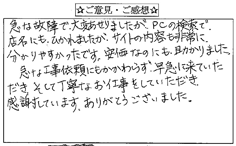 ☆ご意見・ご感想☆
急な故障で、大変あせりましたが、PCの検索で、
店名にもひかれましたが、サイトの内容も非常に、
分かりやすかったです。安価なのにも、助かりました。
急な工事依頼にもかかわらず、早急に来ていた
だき、そして丁寧なお仕事をしていただき、
感謝しています。ありがとうございました。